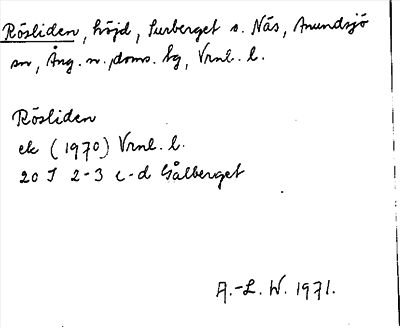 Rösliden, höjd, Surberget s. Näs, Anundsjö
sn, Ång. n. doms. hg, Vrnl. l.
Rösliden
ek (1970) Vrnl. l.
20 I 2-3 c-d Gålberget
A.-L. W. 1971.